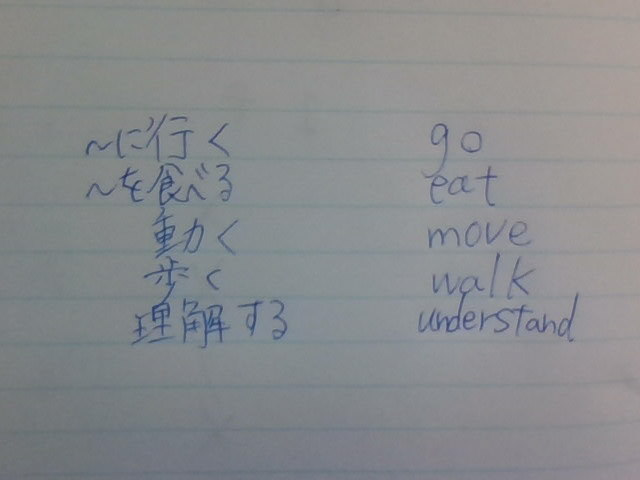 ～に行く go
～を食べる eat
動く move
歩く walk
理解する understand